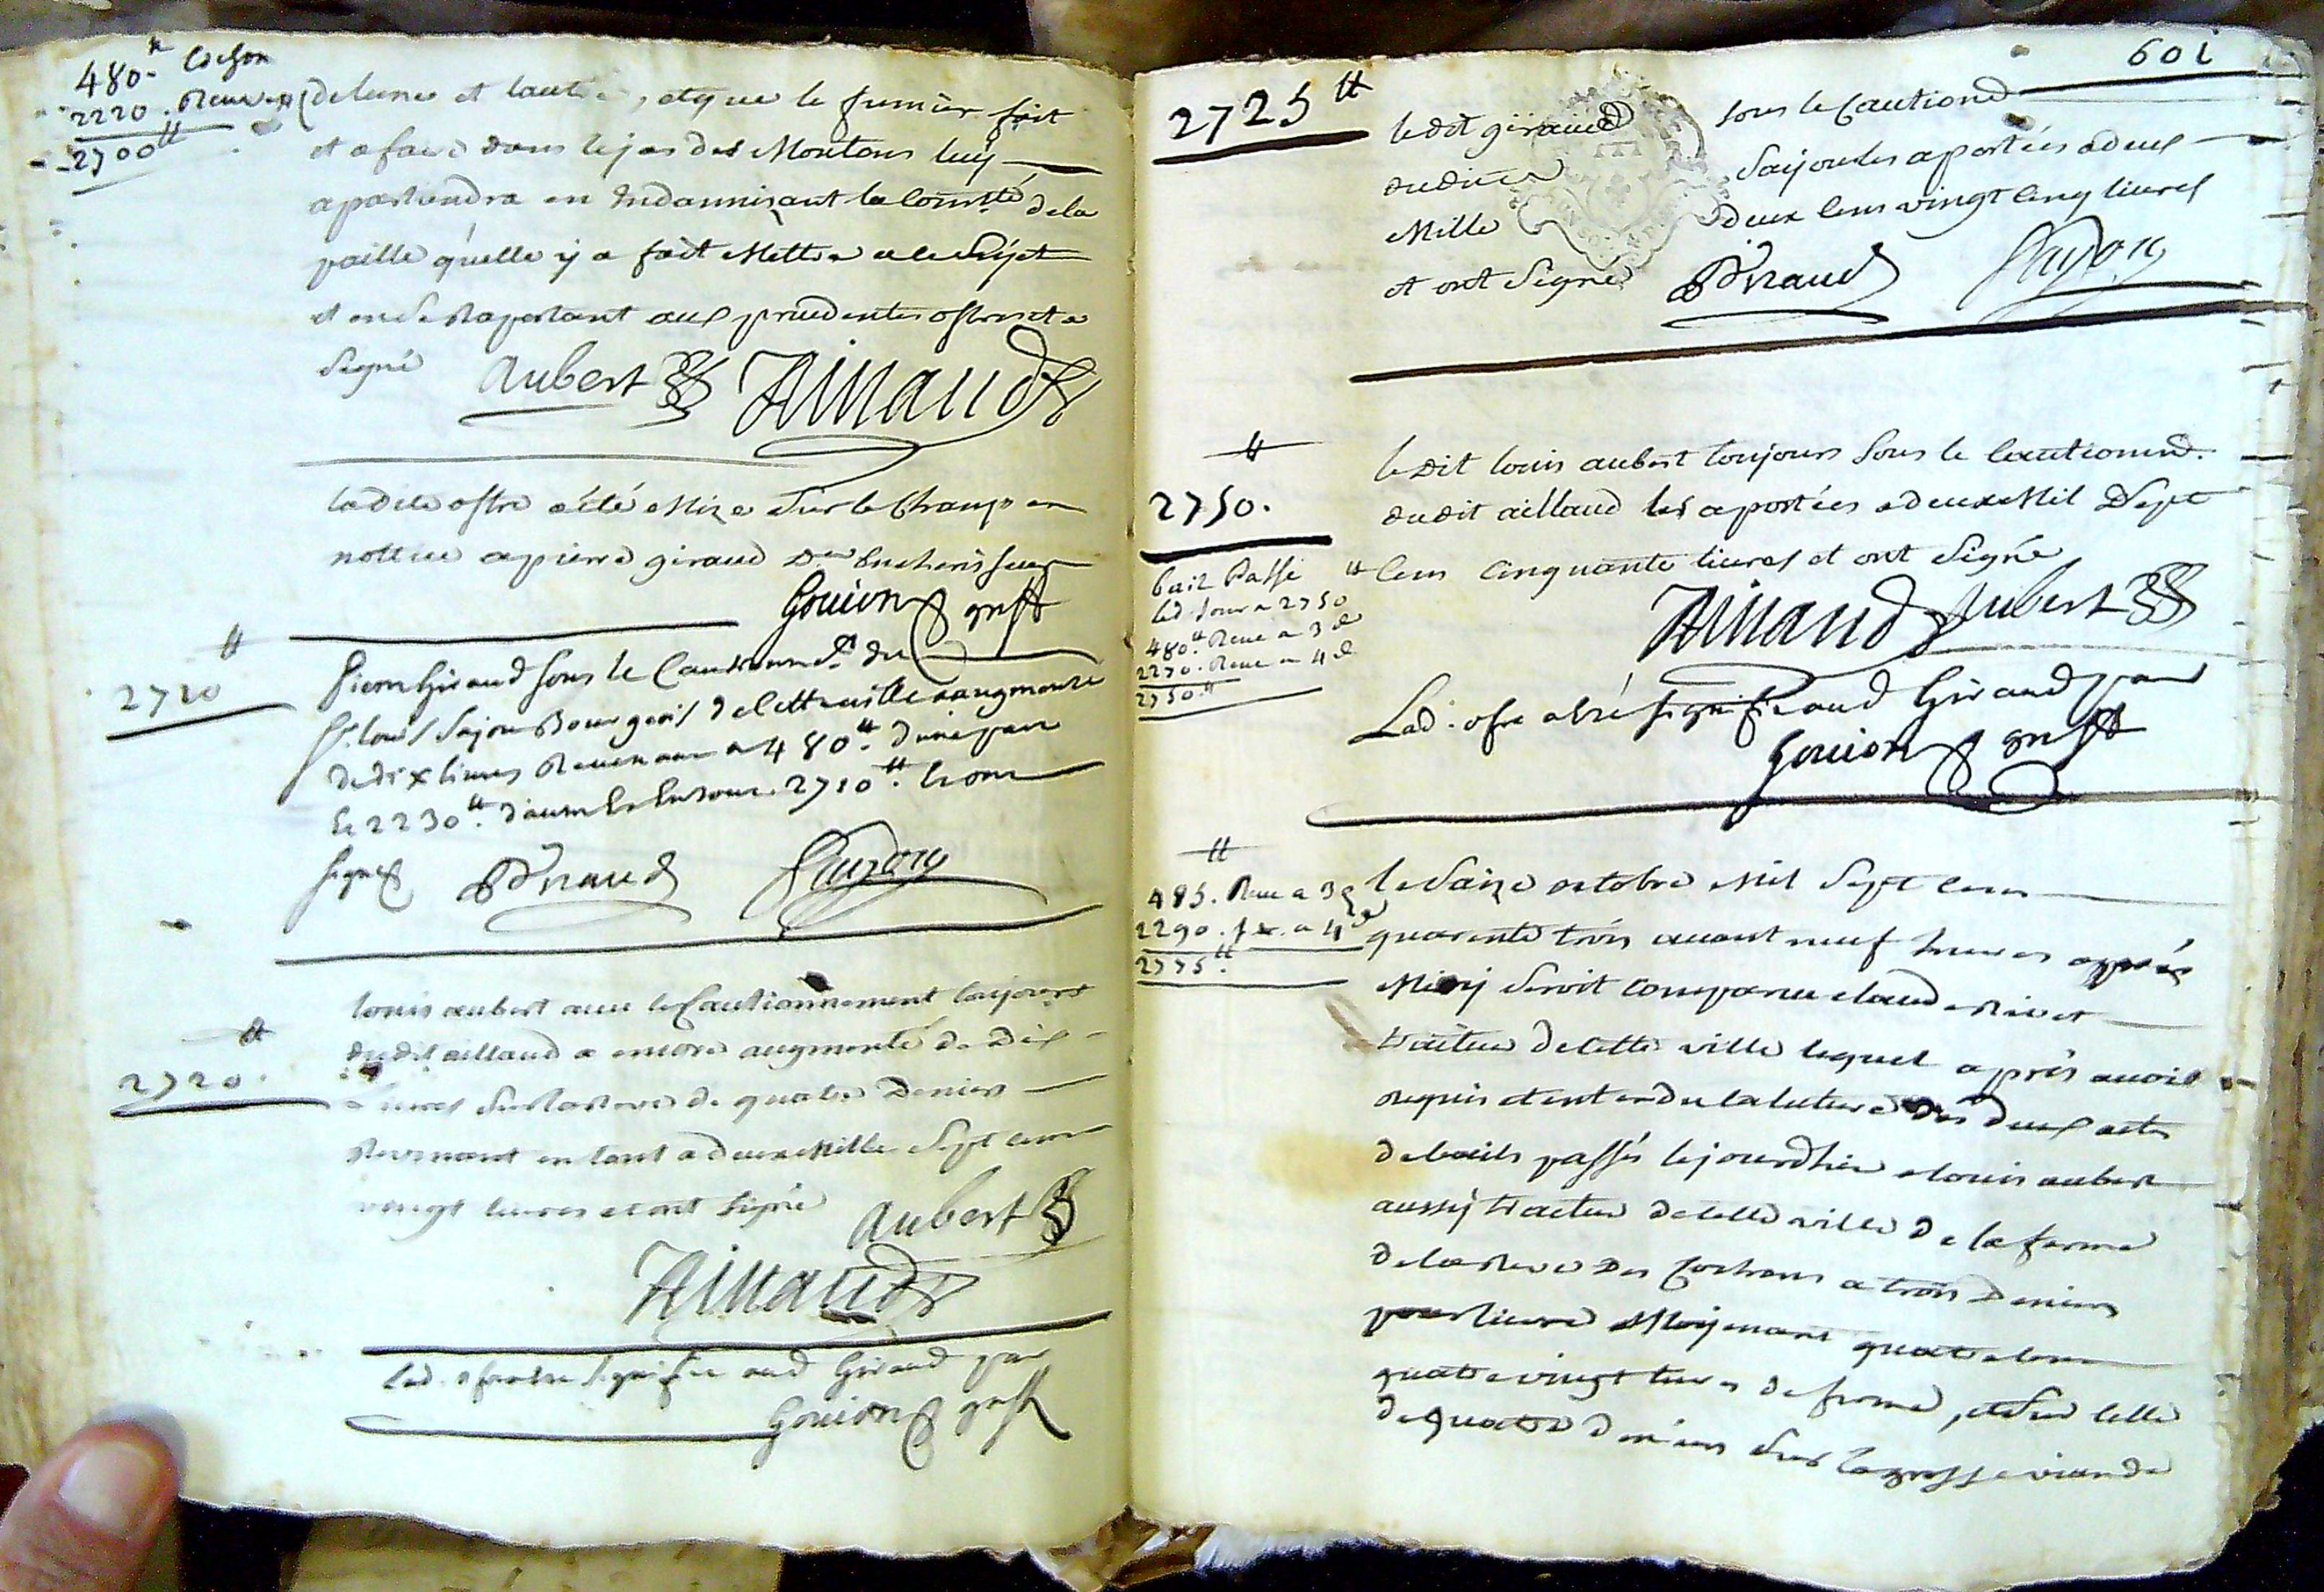 480.tt Cochon
2220. Reve
2700tt
de lune et lautre, et que le fumier fait
et a faire dans le jas des Moutons luy
apartiendra en indannisant la Comté de la
paille quelle y a fait Mettre a ce Sujet
et en se raportant aux prudentes ofres et a
Signé Aubert Aillaud
ladite ofre a été Mize sur le Champ en
nottice a pierre giraud Der Encherisseur
Gouion greff
2710 tt
Pierre Giraud sous le Cautionnemt du
Sr louis Sajou Bourgeois de cette ville a augmenté
de dix livres Revenant a 480tt. d'une part
Et 2230tt. d'autre En tout 2710tt. Et ont
signé PGiraud Sajou
2720. tt
louis aubert avec le Cautionnement toujours
dudit aillaud a encore augmenté de Dix
livres sur la reve de quatre Deniers
Revenant en tout a deux Mille Sept cens
vingt livres et ont signé Aubert
Aillaud
Lad. ofre a été signifiée aud Giraud par
Gouion greff
601
2725 tt
le dit giraud sous le Cautiond
dudit Sajou les a portées a deux
Mille deux Cens vingt Cinq livres
et ont Signé PGiraud Sajou
2750. tt
le dit louis aubert toujours sous le Cautionnd.
dudit aillaud les a portées a deux Mil Sept
Cens Cinquante livres et ont Signé
Aillaud Aubert
bail Passé
led. Jour a 2750 tt
480.tt Reve a 3 d
2270. Reve a 4 d
2750.tt
Lad. ofre a été signifiée aud Giraud par
Gouion greff
tt
485. Reve a 3 d
2290. a 4 d
2775.tt
le Saize octobre Mil Sept Cens
quarante trois avant neuf heures apprés
Midy Seroit Comparu Claude
traiteur de cette ville lequel aprés avoir
requis et entendu la lecture des deux actes
de bails passés le jourdhier a louis aubert
aussy traiteur de cette ville de la ferme
de la Reve des Cochons a trois Deniers
pour livre Moyenant quatre Cens
quatre vingt livres de ferme, et Sur celle
de quatre deniers Sur la grosse viande